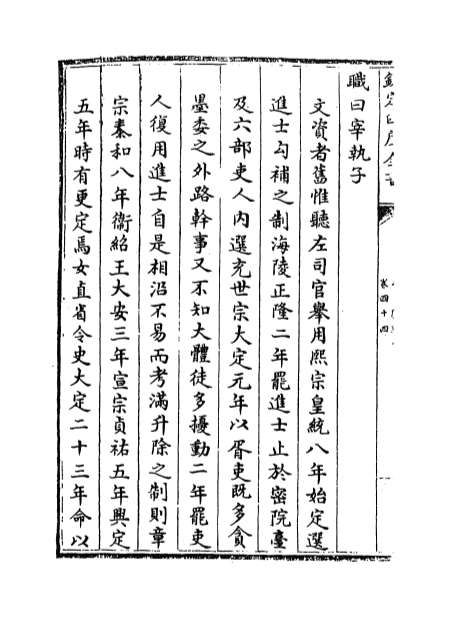 欽定四庫全書
卷四十四
職曰宰執子
文資者舊惟聽左司官舉用熙宗皇統八年始定選
進士勾補之制海陵正隆二年罷進士止於密院臺
及六部吏人内選充世宗大定元年以胥吏既多貪
墨委之外路幹事又不知大體徒多擾動二年罷吏
人復用進士自是相沿不易而考滿升除之制則章
宗秦和八年衞紹王大安三年宣宗貞祐五年興定
五年時有更定焉女直省令史大定二十三年命以